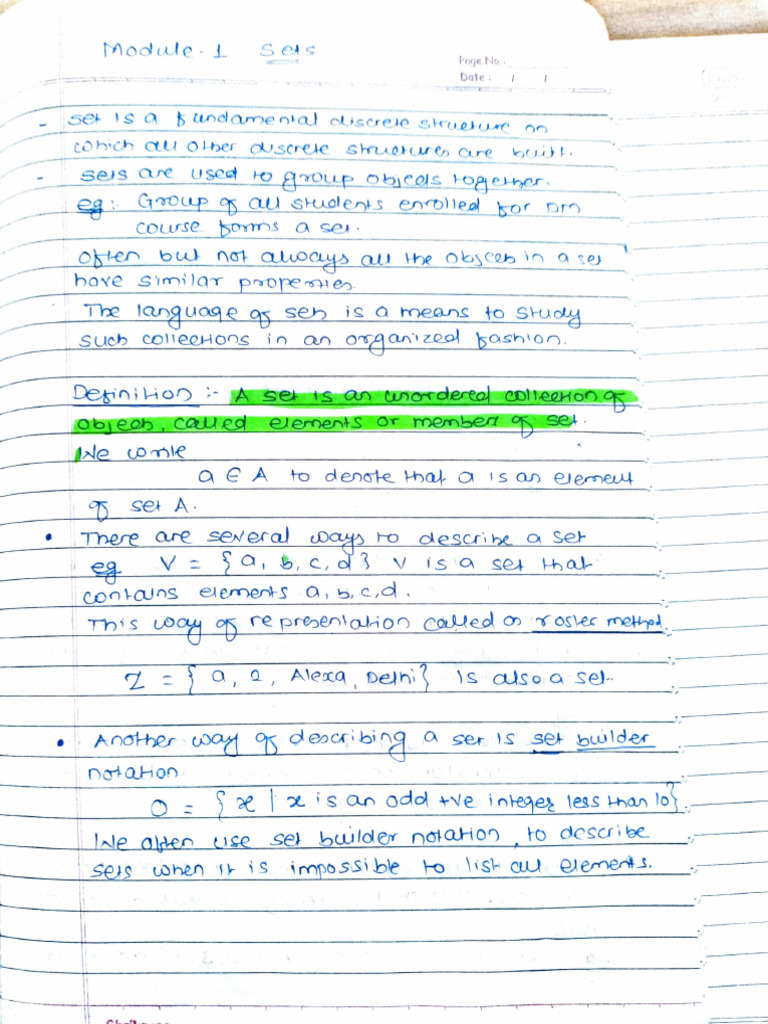 Module-1 Sets
Page No.:
Date: / /
- Set is a fundamental discrete structure on
which all other discrete structures are built.
- Sets are used to group objects together.
eg: Group of all students enrolled for DM
course forms a set.
Often but not always all the objects in a set
have similar properties
The language of sets is a means to study
such collections in an organized fashion.
Definition :- A set is an unordered collection of
objects, called elements or members of set.
We write
a ∈ A to denote that a is an element
of set A.
• There are several ways to describe a set
eg V = {a, b, c, d} V is a set that
contains elements a, b, c, d.
This way of representation called as roster method
Z = {a, 2, Alexa, Delhi} is also a set.
• Another way of describing a set is set builder
notation
O = {x | x is an odd +ve integer less than 10}
We often use set builder notation, to describe
sets when it is impossible to list all elements.